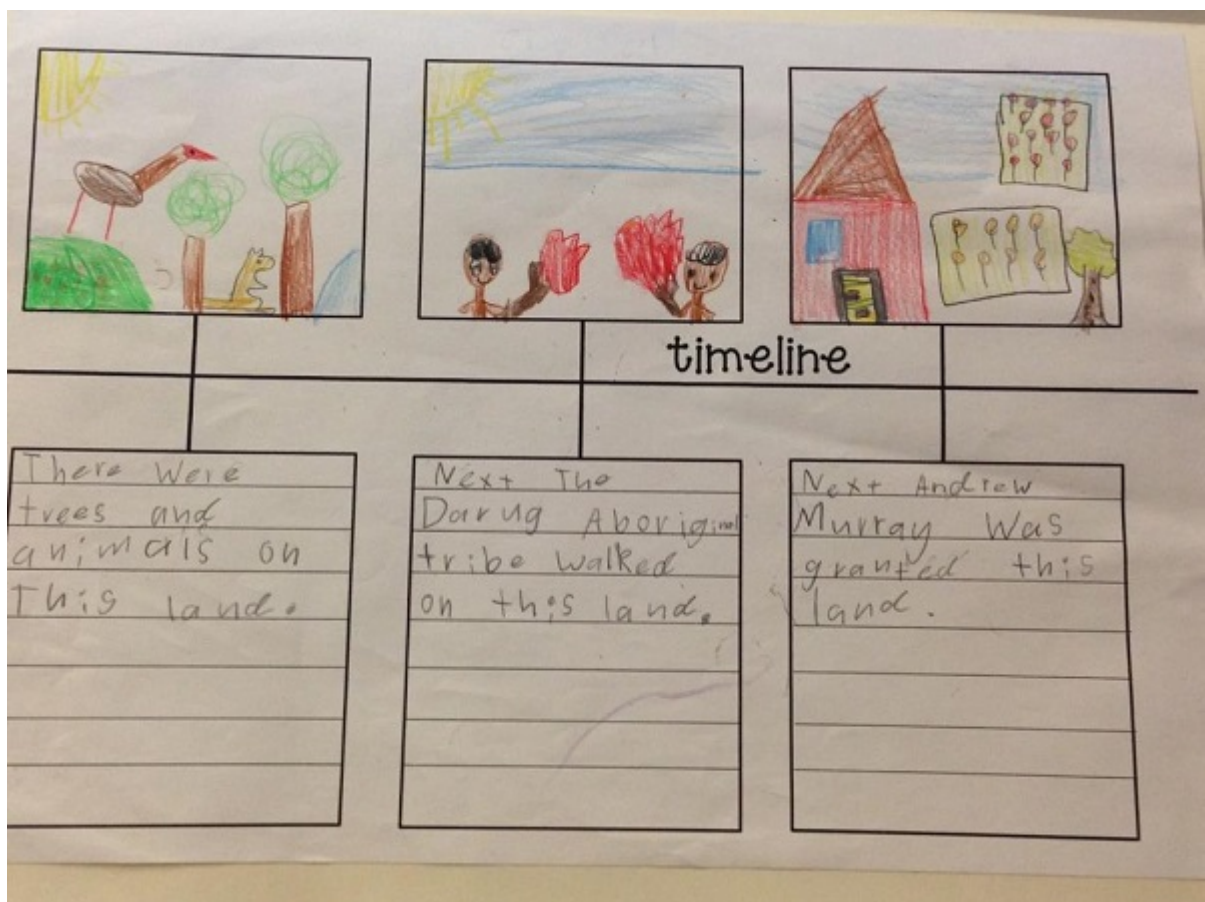 timeline
There Were
trees and
animals on
This land.
Next The
Darug Aboriginal
tribe walked
on this land.
Next Andrew
Murray Was
granted this
land.